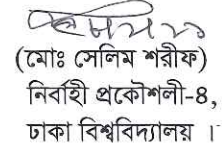 (মোঃ সেলিম শরীফ)
নির্বাহী প্রকৌশলী-8,
ঢাকা বিশ্ববিদ্যালয় ।